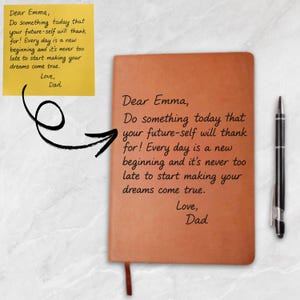 Dear Emma,
Do something today that
your future-self will thank
for! Every day is a new
beginning and it's never too
late to start making your
dreams come true.
Love,
Dad
Dear Emma,
Do something today that
your future-self will thank
for! Every day is a new
beginning and it's never too
late to start making your
dreams come true.
Love,
Dad